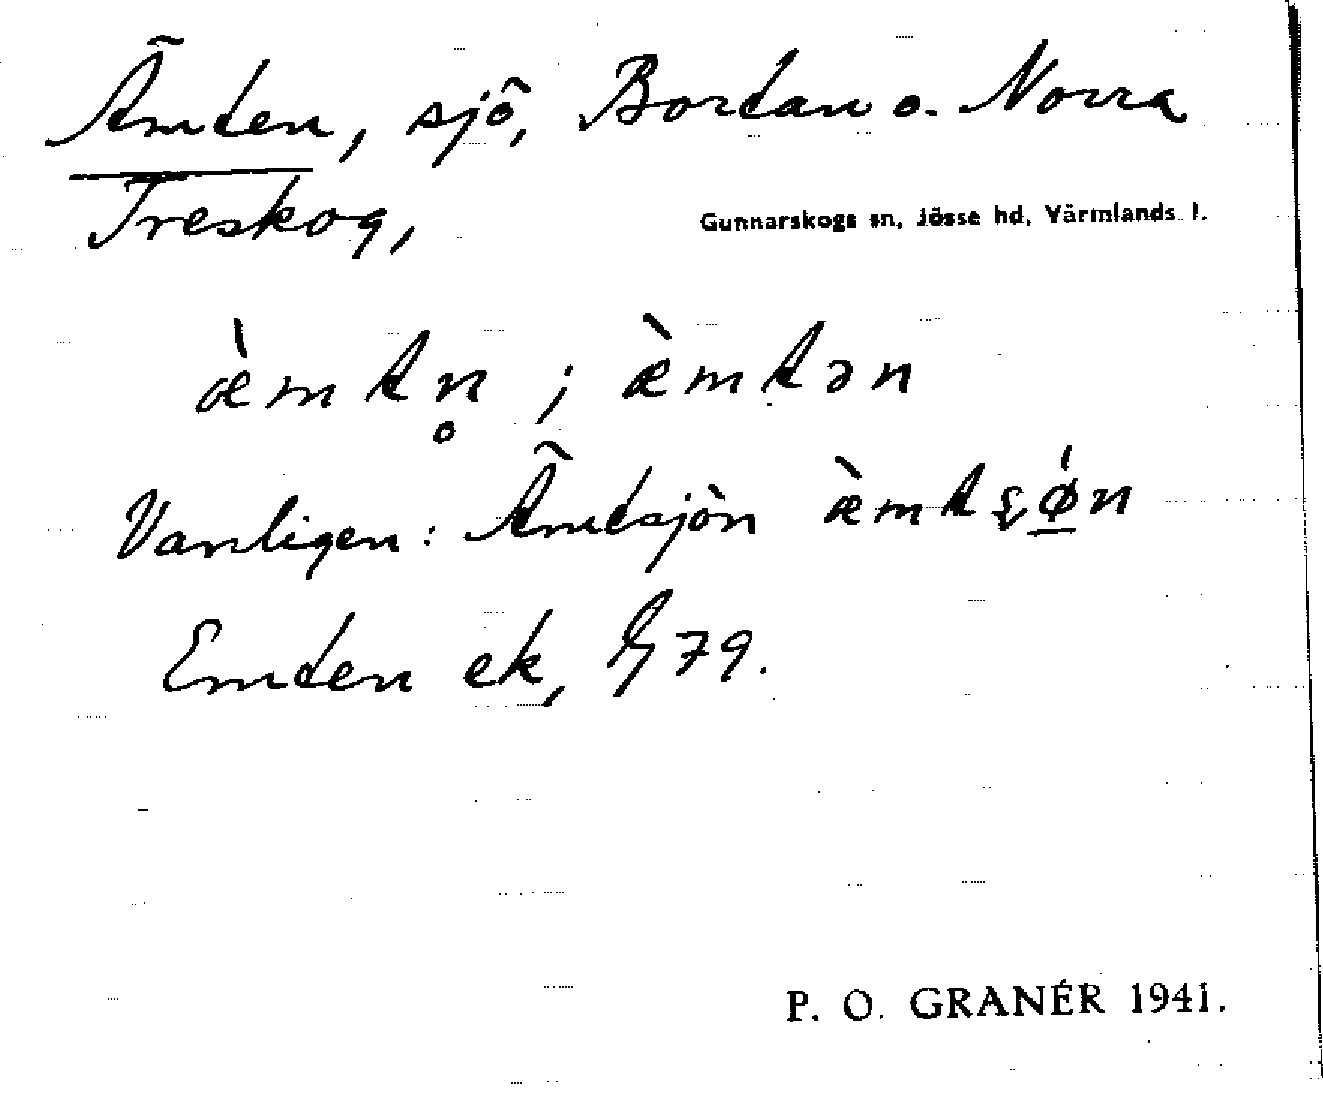 Ämten, sjö, Bortan o. Norra
Treskog,
Gunnarskogs sn, Jösse hd, Värmlands l.
æ̀mtn̥ ; æ̀mtən
Vanligen: Ämtsjön æ̀mtʂǿn
Emten ek, 79.
P. O. GRANÉR 1941.